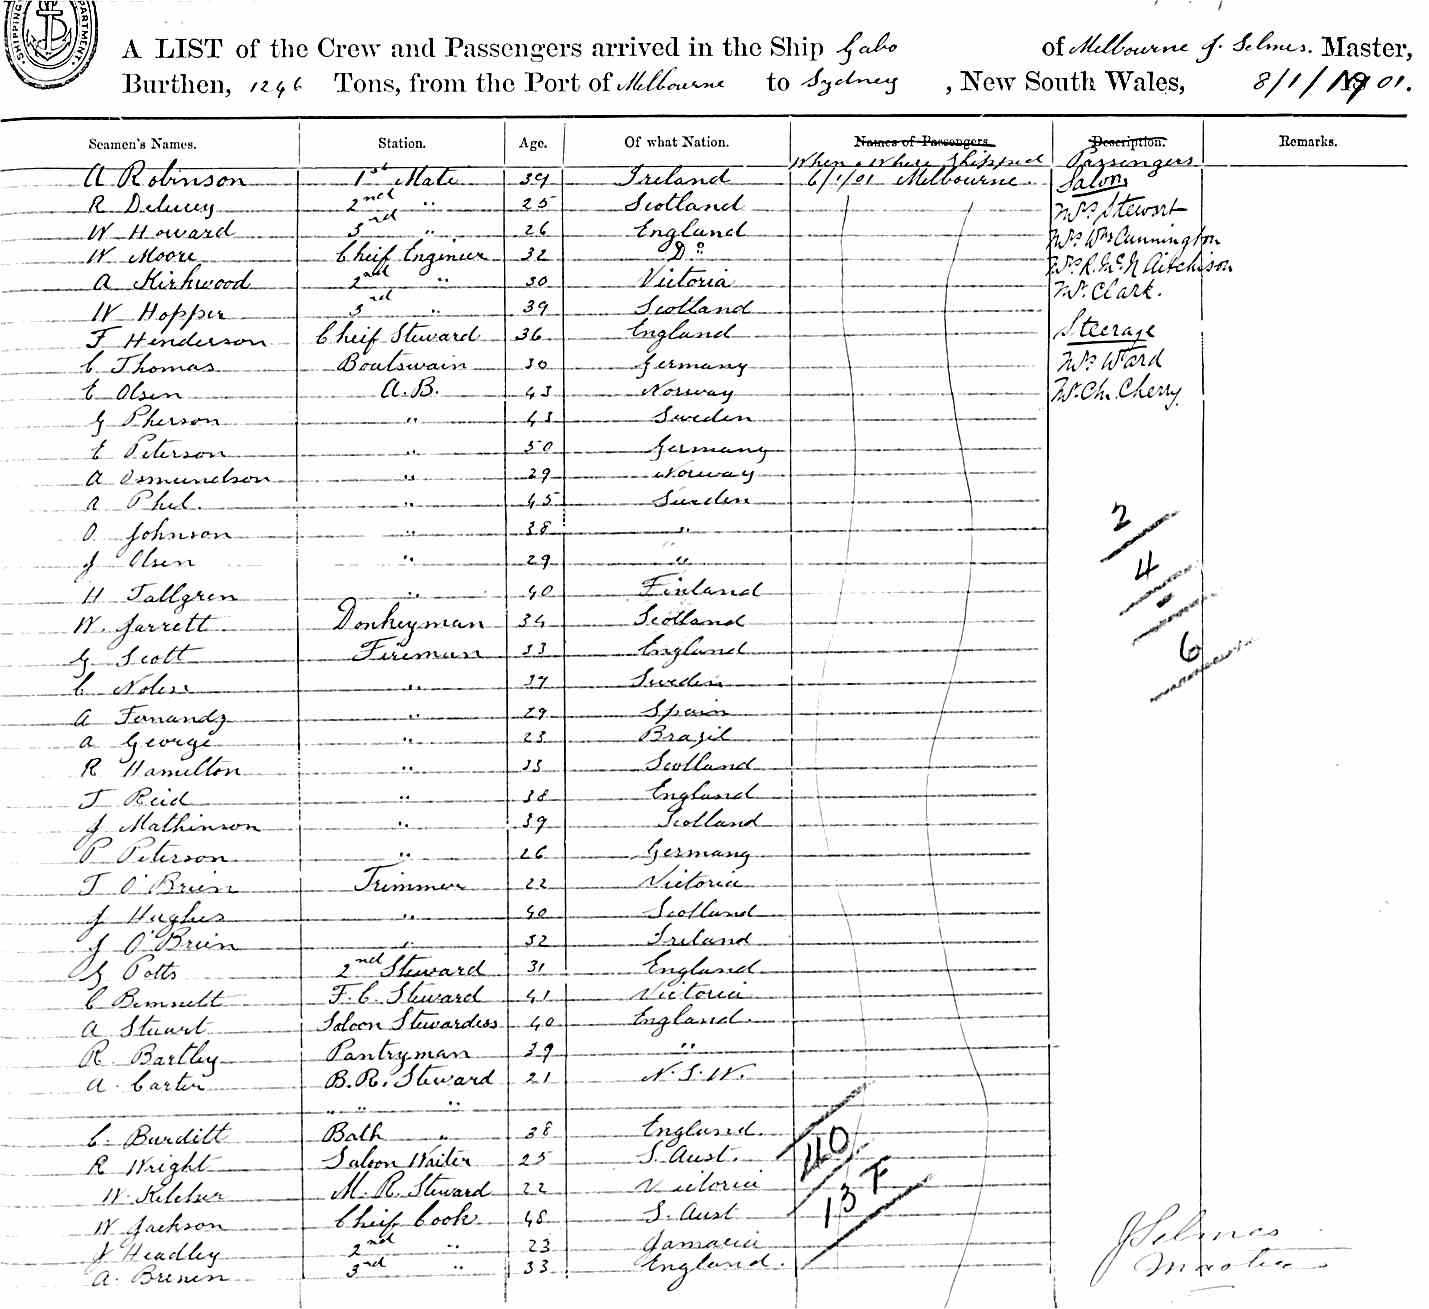 SHIPPING DEPARTMENT.
A LIST of the Crew and Passengers arrived in the Ship Gabo of Melbourne J. Selmes. Master,
Burthen, 1246 Tons, from the Port of Melbourne to Sydney , New South Wales, 8/1/1901.
Seamen's Names. Station. Age. Of what Nation. Names of Passengers. Description. Remarks.
When & Where Shipped Passengers
A Robinson 1st Mate 39 Ireland 6/1/01 Melbourne. Saloon
R Delucey 2nd " 25 Scotland Mrs Stewart
W Howard 3rd " 26 England Mrs Wm Cunnington
W Moore Chief Engineer 32 Do Mrs R. McN Aitchison
A Kirkwood 2nd " 30 Victoria Mr. Clark.
W Hopper 3rd 39 Scotland
F Henderson Chief Steward 36 England Steerage
C Thomas Boatswain 30 Germany Mrs Ward
E Olsen A.B. 43 Norway Mr Ch. Cherry
G Pherson " 43 Sweden
E Peterson " 50 Germany
A Osmundson " 29 Norway
A Phel. " 45 Sweden
O Johnson " 38 "
J Olsen " 29 "
H Tallgren " 40 Finland
W. Jarrett Donkeyman 34 Scotland
G Scott Fireman 33 England
C Nolese " 37 Sweden
A Fernandz " 29 Spain
A George " 23 Brazil
R Hamilton " 35 Scotland
T Reid " 38 England
J Mathinson " 39 Scotland
P Peterson " 26 Germany
T O'Brien Trimmer 22 Victoria
J Hughes " 40 Scotland
J O'Brien " 32 Ireland
G Potts 2nd Steward 31 England
C Bennett F.C. Steward 41 Victoria
A Stuart Saloon Stewardess 40 England
R. Bartley Pantryman 39 "
A. Carter B.R. Steward 21 N.S.W.
" " "
C. Burditt Bath " 38 England
R Wright Saloon Waiter 25 S. Aust.
W. Kelcher M.R. Steward 22 Victoria
W Jackson Chief Cook 48 S. Aust
J Headley 2nd " 23 Jamacia
A. Brenen 3rd " 33 England.
2
4
-
6
40
13 F
J Selmes
Master